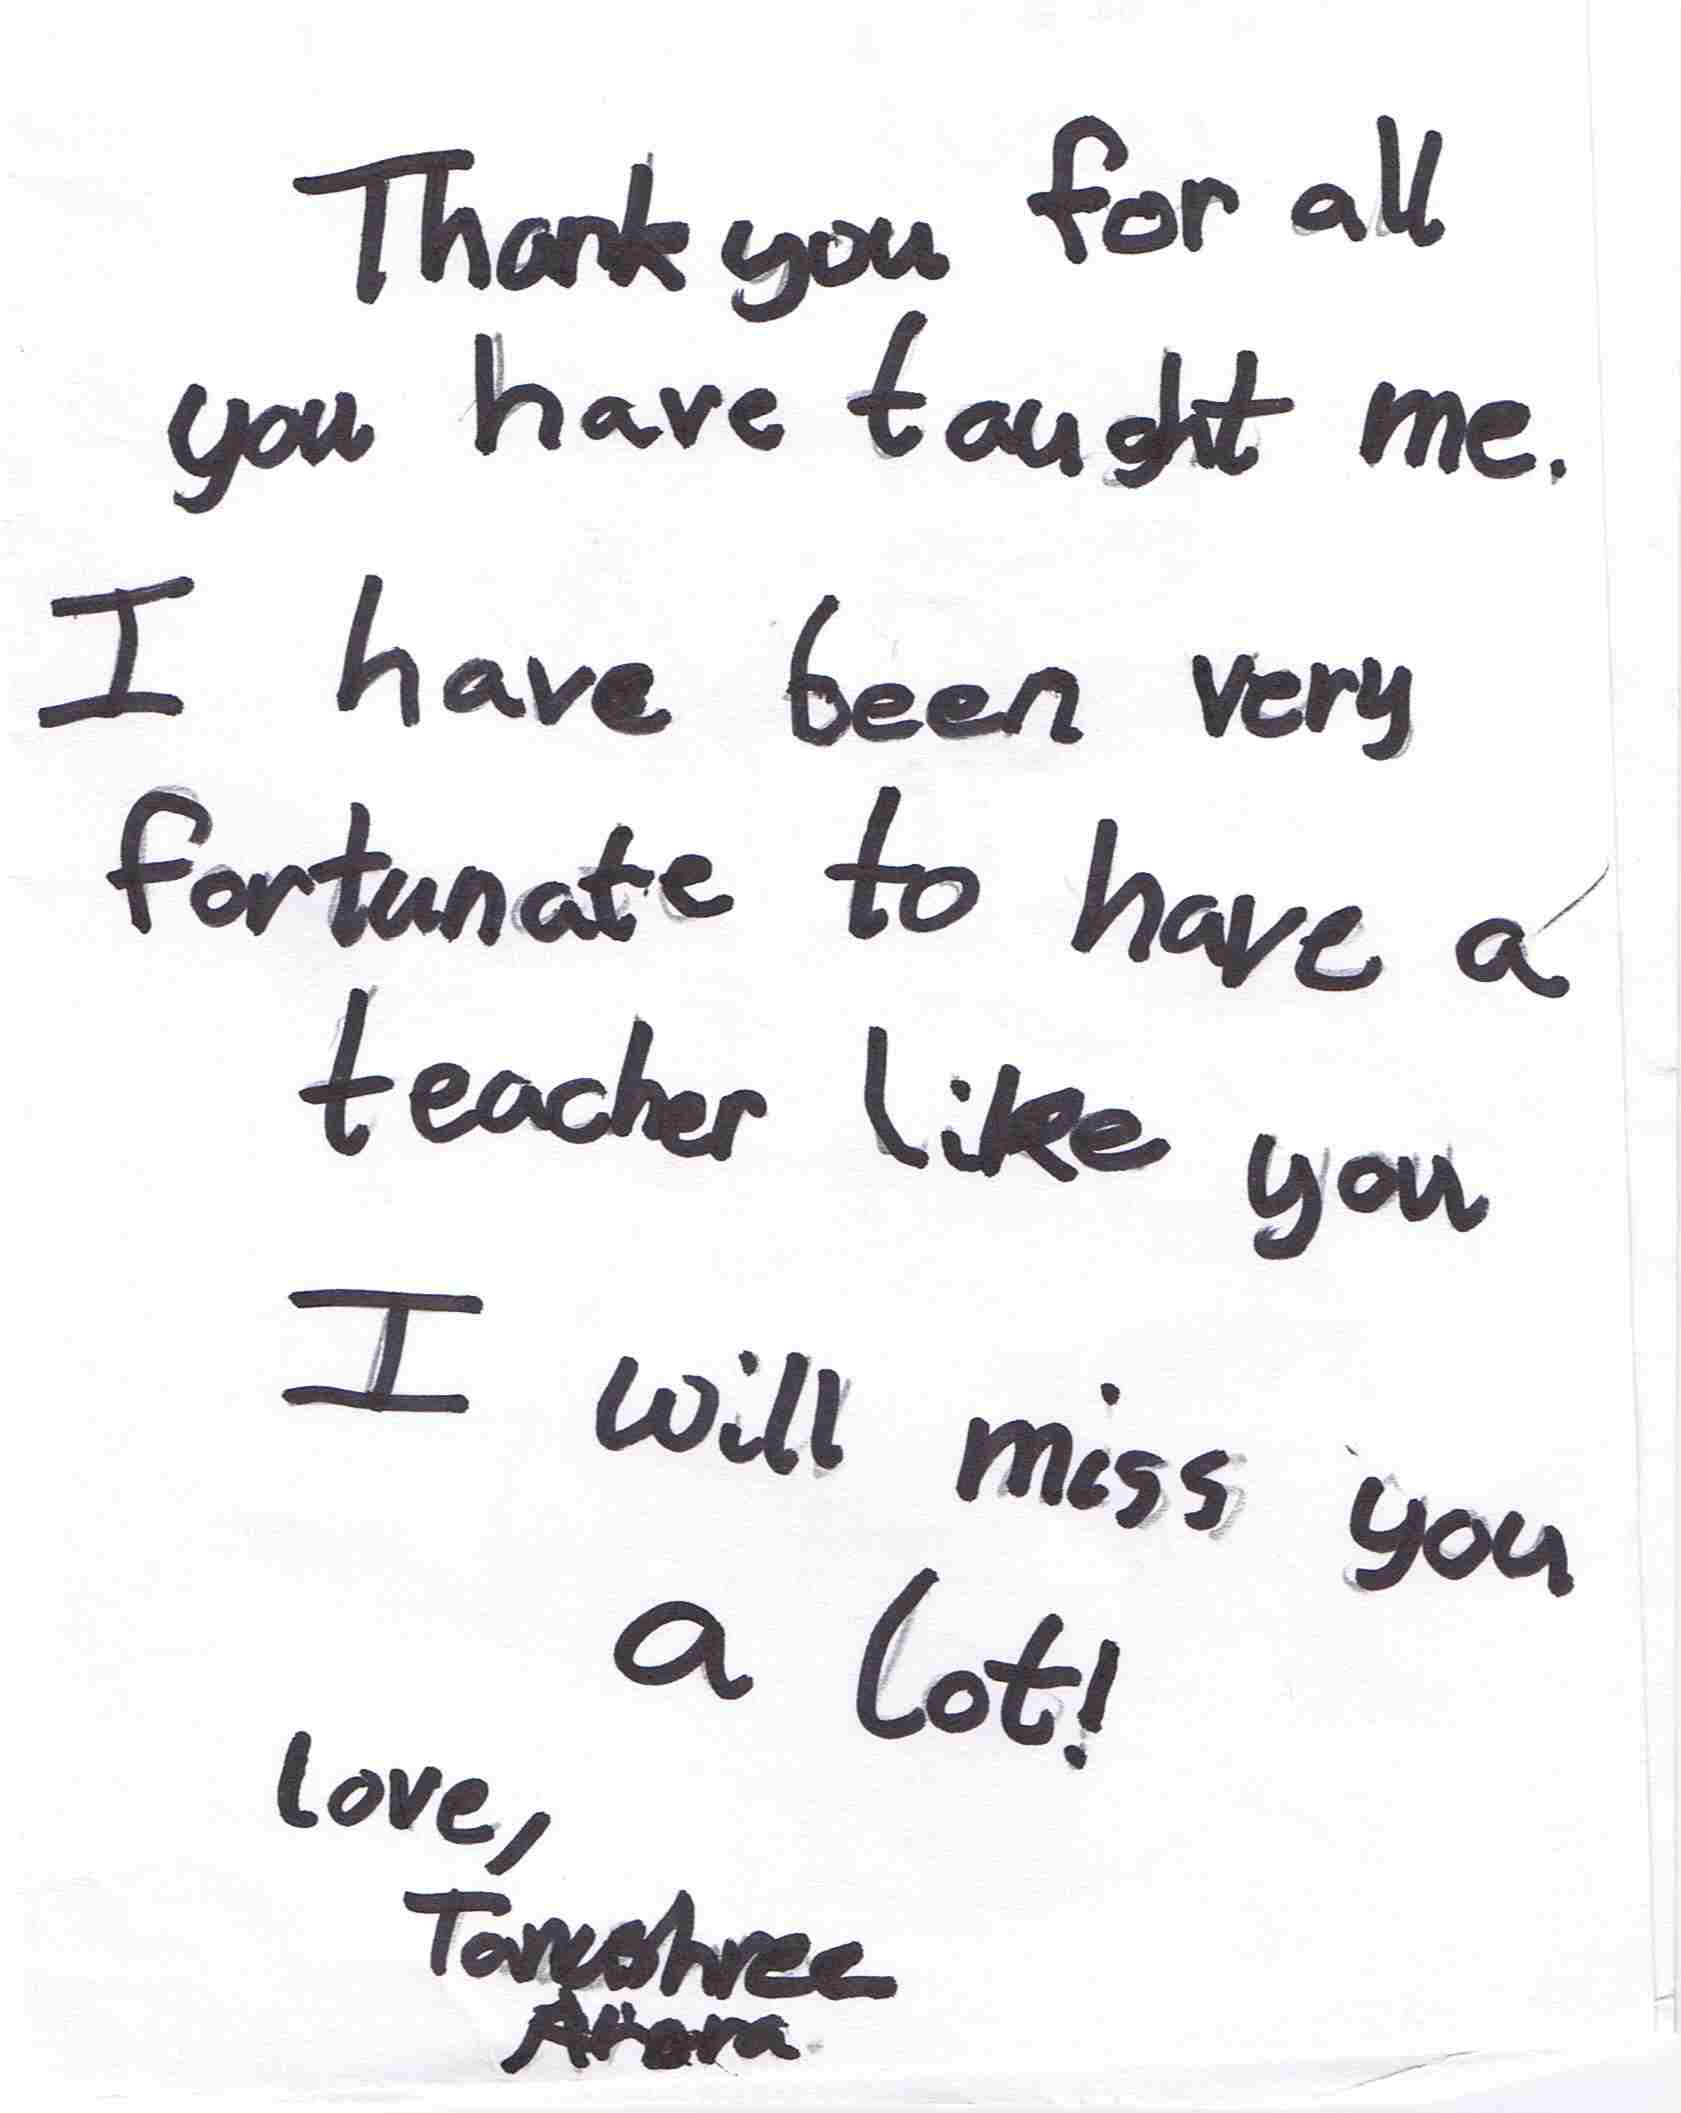 Thank you for all
you have taught me.
I have been very
fortunate to have a
teacher like you
I will miss you
a lot!
love,
Tanushree
Arora